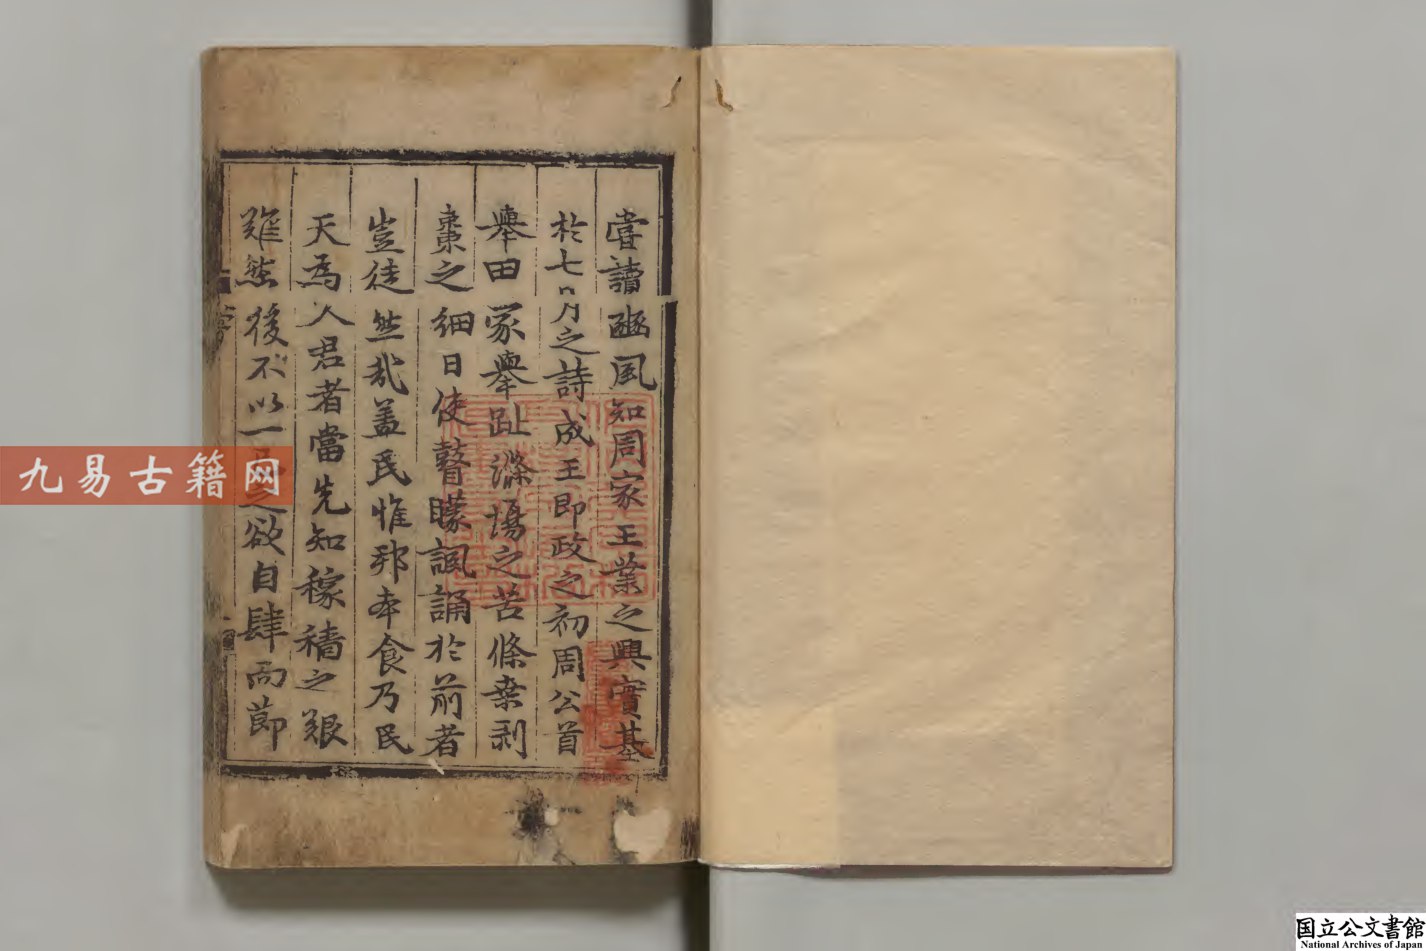 嘗讀豳風知周家王業之興實基
於七月之詩成王即政之初周公首
舉田家舉趾滌場之苦條桒剥
棗之細日使瞽矇諷誦於前者
豈徒然哉盖民惟邦本食乃民
天為人君者當先知稼穡之艱
難然後不以一己之欲自肆而節
九易古籍网
国立公文書館
National Archives of Japan